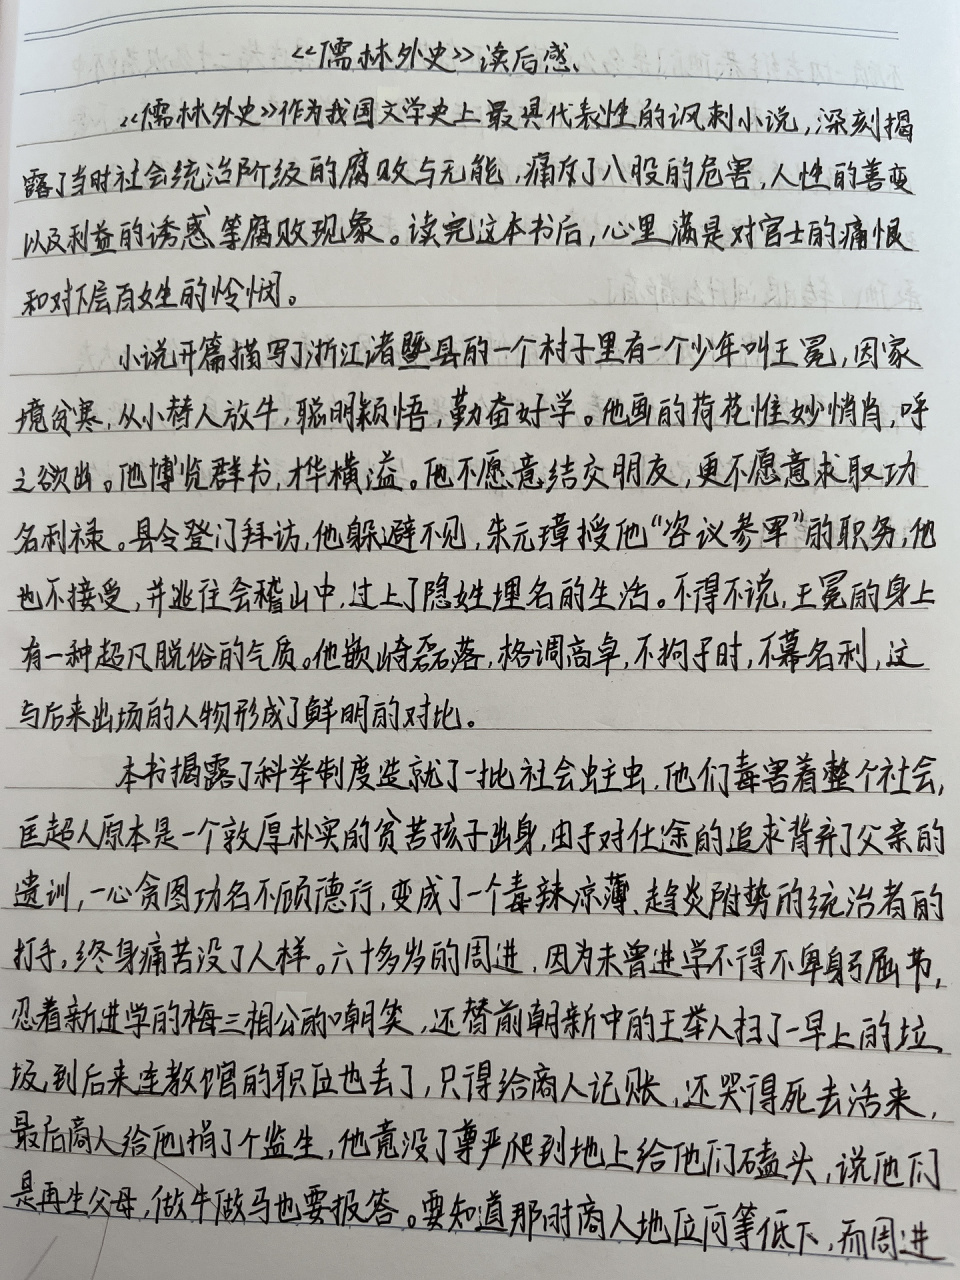 《儒林外史》读后感、
《儒林外史》作为我国文学史上最具代表性的讽刺小说,深刻揭
露了当时社会统治阶级的腐败与无能,痛斥了八股的危害,人性的善变
以及利益的诱惑、等腐败现象。读完这本书后,心里满是对官士的痛恨
和对下层百姓的怜悯。
小说开篇描写了浙江诸暨县的一个村子里有一个少年叫王冕,因家
境贫寒,从小替人放牛,聪明颖悟,勤奋好学。他画的荷花惟妙惟肖,呼
之欲出。他博览群书,才华横溢。他不愿意结交朋友,更不愿意求取功
名利禄。县令登门拜访,他躲避不见,朱元璋授他“咨议参军”的职务,他
也不接受,并逃往会稽山中,过上了隐姓埋名的生活。不得不说,王冕的身上
有一种超凡脱俗的气质。他嵚崎磊落,格调高卓,不拘于时,不慕名利,这
与后来出场的人物形成了鲜明的对比。
本书揭露了科举制度造就了一批社会蛀虫,他们毒害着整个社会,
匡超人原本是一个敦厚朴实的贫苦孩子出身,由于对仕途的追求背弃了父亲的
遗训,一心贪图功名不顾德行,变成了一个毒辣凉薄、趋炎附势的统治者的
打手,终身痛苦没了人样。六十多岁的周进,因为未曾进学不得不卑躬屈节,
忍着新进学的梅三相公的嘲笑,还替前朝新中的王举人扫了一早上的垃
圾,到后来连教馆的职位也丢了,只得给商人记账,还哭得死去活来,
最后商人给他捐了个监生,他竟没了尊严爬到地上给他们磕头,说他们
是再生父母,做牛做马也要报答。要知道那时商人地位何等低下,而周进